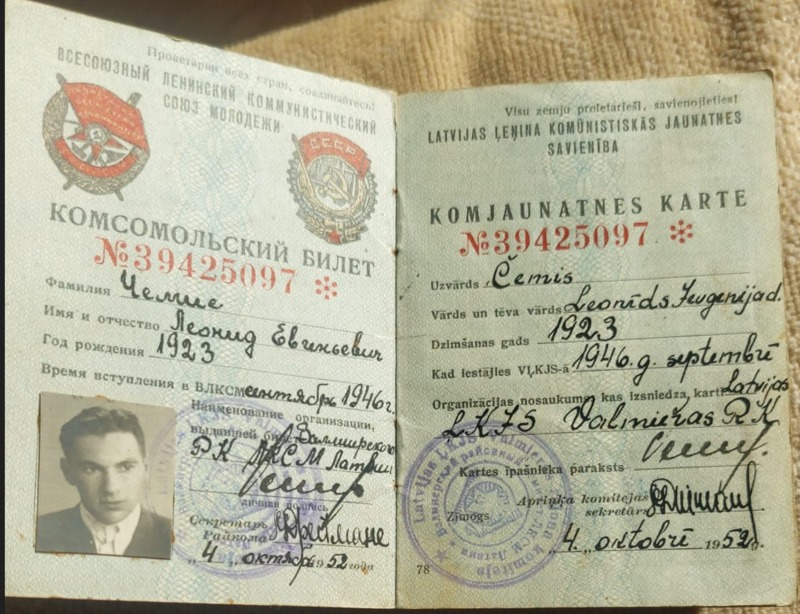 Пролетарии всех стран, соединяйтесь!
ВСЕСОЮЗНЫЙ ЛЕНИНСКИЙ КОММУНИСТИЧЕСКИЙ
СОЮЗ МОЛОДЕЖИ
СССР
КОМСОМОЛЬСКИЙ БИЛЕТ
№39425097
Фамилия Чемис
Имя и отчество Леонид Евгеньевич
Год рождения 1923
Время вступления в ВЛКСМ сентябрь 1946 г.
Наименование организации,
выдавшей билет Валмиерского
РК ЛКСМ Латвии
личная подпись
Секретарь
Райкома
"4" октября 1952 года
Visu zemju proletārieši, savienojieties!
LATVIJAS ĻEŅINA KOMŪNISTISKĀS JAUNATNES
SAVIENĪBA
KOMJAUNATNES KARTE
№39425097
Uzvārds Čemis
Vārds un tēva vārds Leonīds Jevgenija d.
Dzimšanas gads 1923
Kad iestājies VĻKJS-ā 1946. g. septembrī
Organizācijas nosaukums, kas izsniedza karti Latvijas
LĶJS Valmieras RK
Kartes īpašnieka paraksts
Apriņķa komitejas
sekretārs
Zīmogs
"4." oktobrī 1952. g.
78